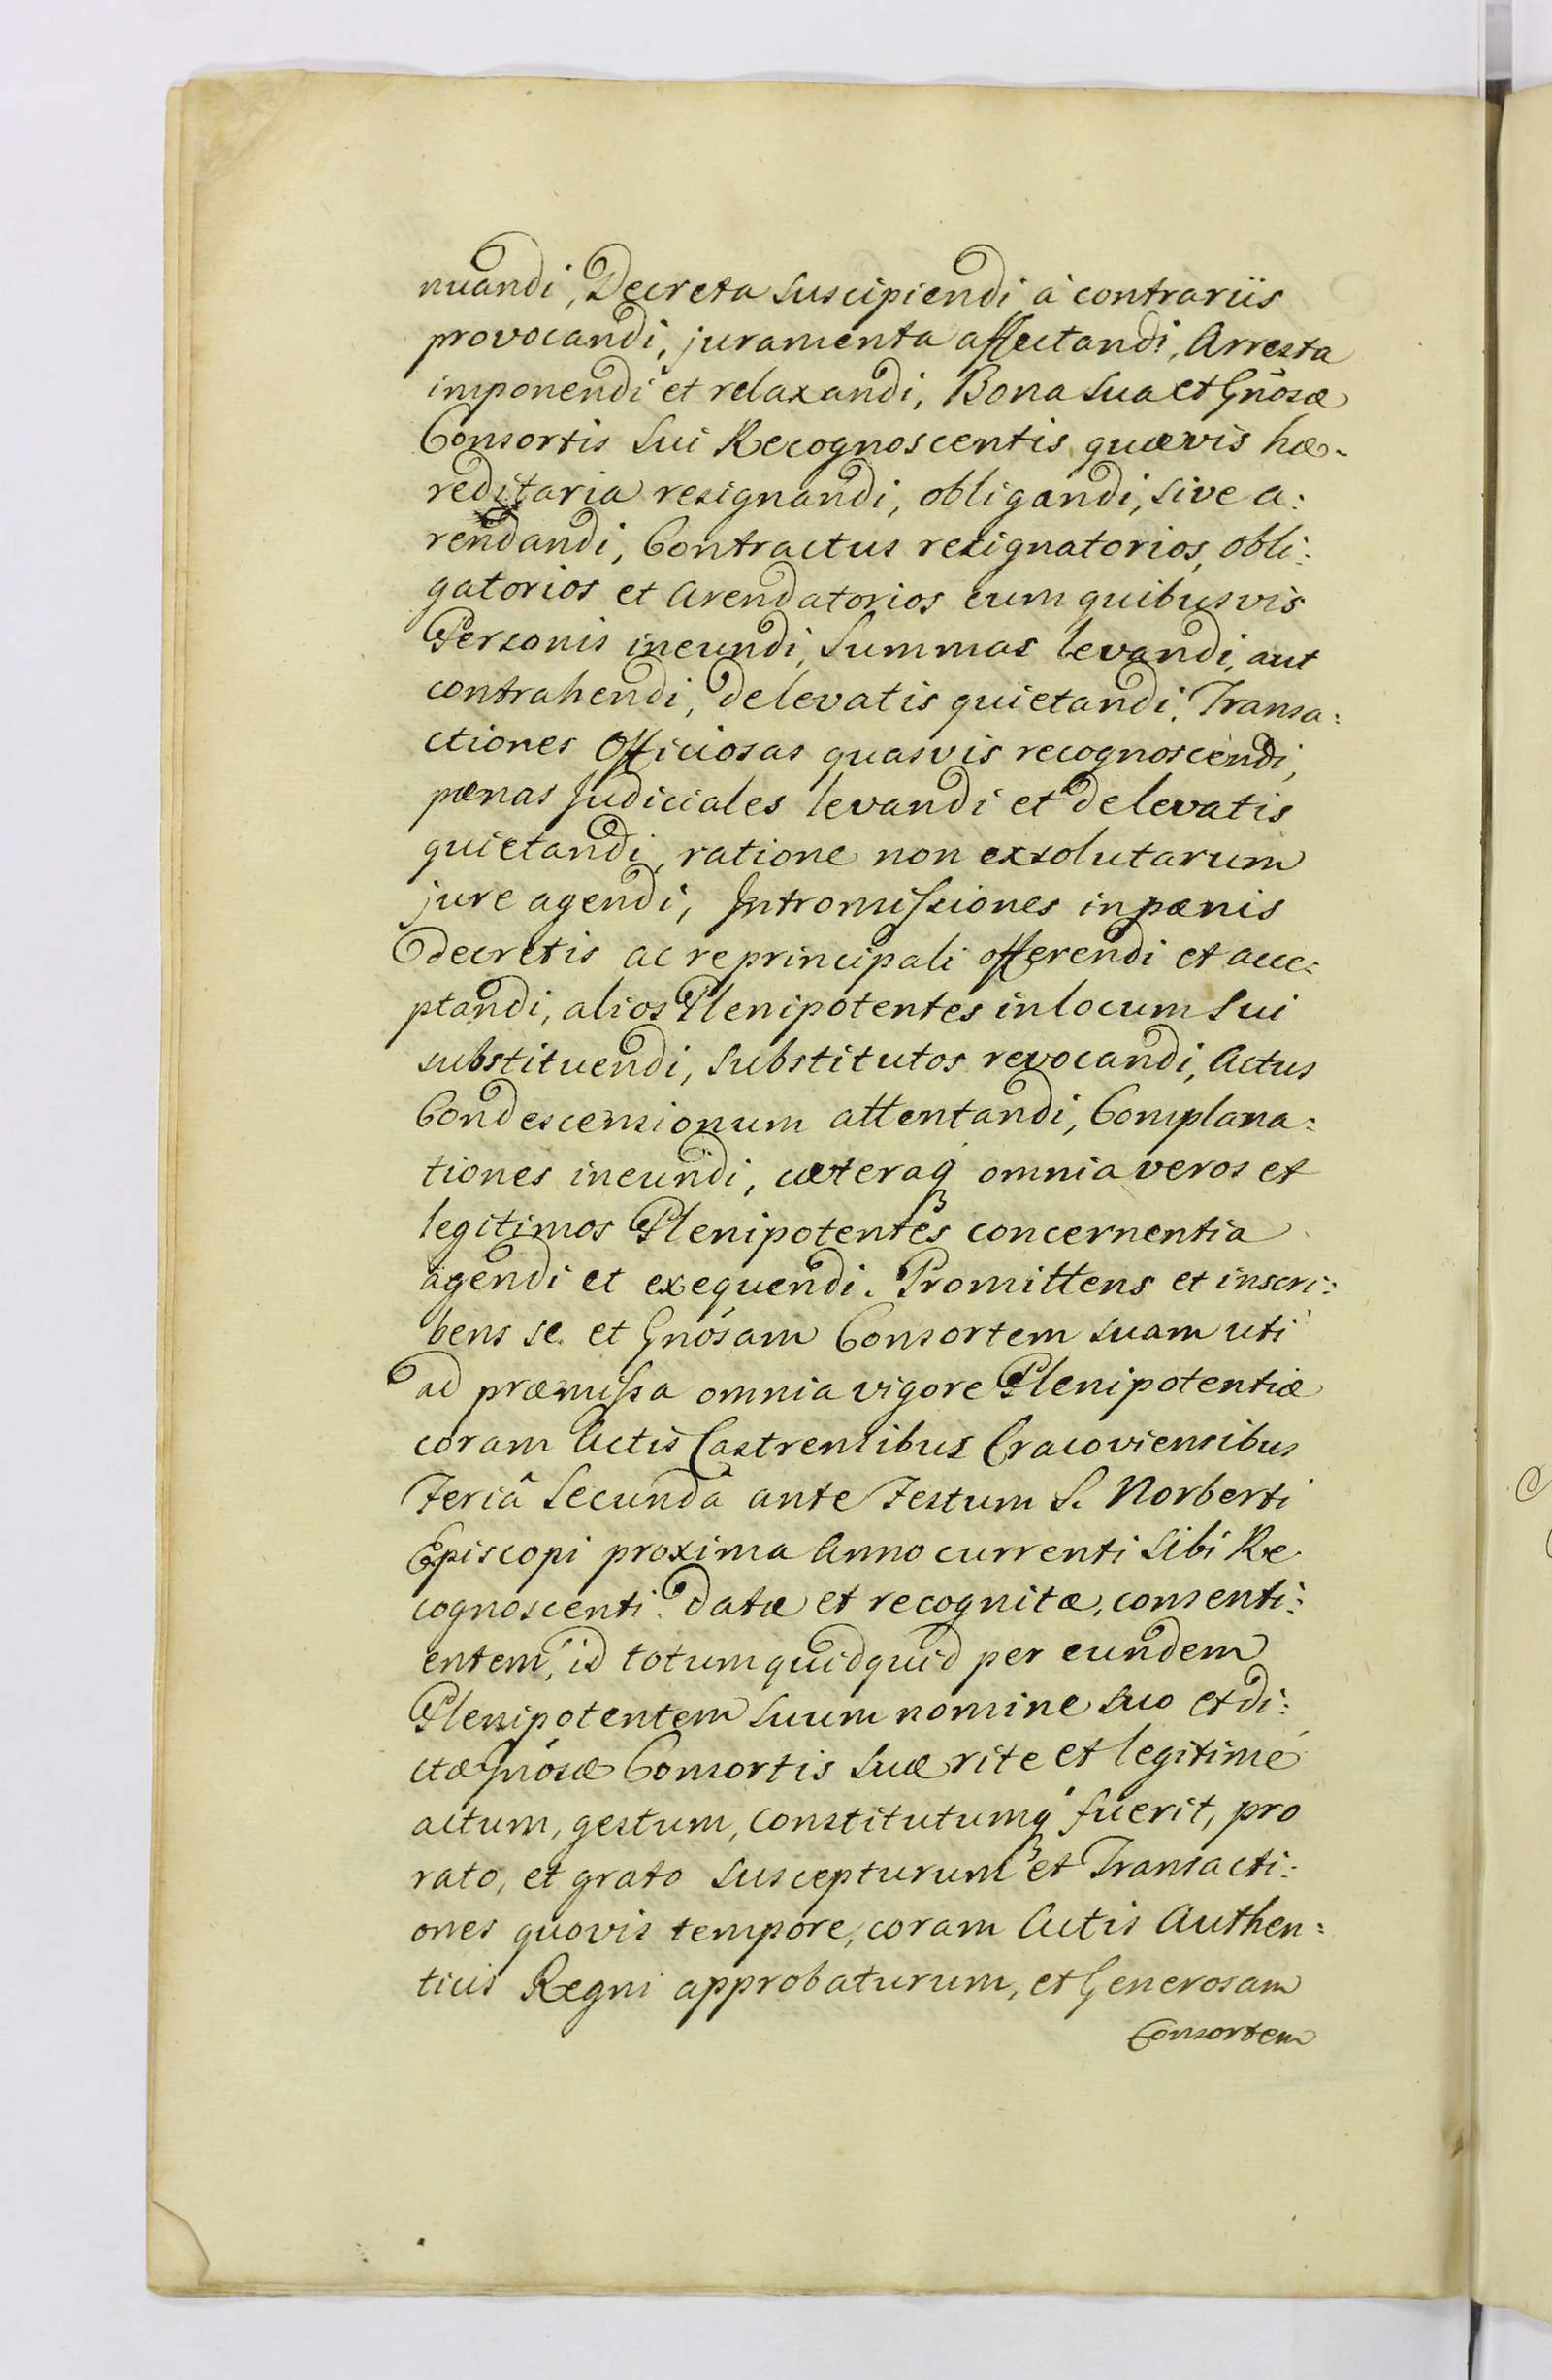 nuandi, Decreta suscipiendi à contrariis
provocandi, juramenta affectandi, Arresta
imponendi et relaxandi, Bona sua et Gnosæ
Consortis sui Recognoscentis quævis hæ-
reditaria resignandi, obligandi, sive a:
rendandi, Contractus resignatorios, obli:
gatorios et Arendatorios cum quibusvis
Personis ineundi, Summas levandi, aut
contrahendi, de levatis quietandi, Transa:
ctiones Officiosas quasvis recognoscendi,
pænas Judiciales levandi et de levatis
quietandi, ratione non exsolutarum
jure agendi, Intromissiones in pænis
decretis ac re principali offerendi et acce:
ptandi, alios Plenipotentes in locum sui
substituendi, substitutos revocandi, Actus
Condescensionum attentandi, Complana:
tiones ineundi, cæteraq omnia veros et
legitimos Plenipotentes concernentia
agendi et exequendi. Promittens et inscri:
bens se et Gnosam Consortem suam uti
ad præmissa omnia vigore Plenipotentiæ
coram Actis Castrensibus Cracoviensibus
Feriâ Secundâ ante Festum S. Norberti
Episcopi proxima Anno currenti sibi Re
cognoscenti datæ et recognitæ, consenti:
entem, id totum quidquid per eundem
Plenipotentem suum nomine suo et di:
ctæ Gnosæ Consortis suæ rite et legitimé
actum, gestum, constitutumq fuerit, pro
rato, et grato suscepturum et Transacti:
ones quovis tempore, coram Actis Authen:
ticis Regni approbaturum, et Generosam
Consortem